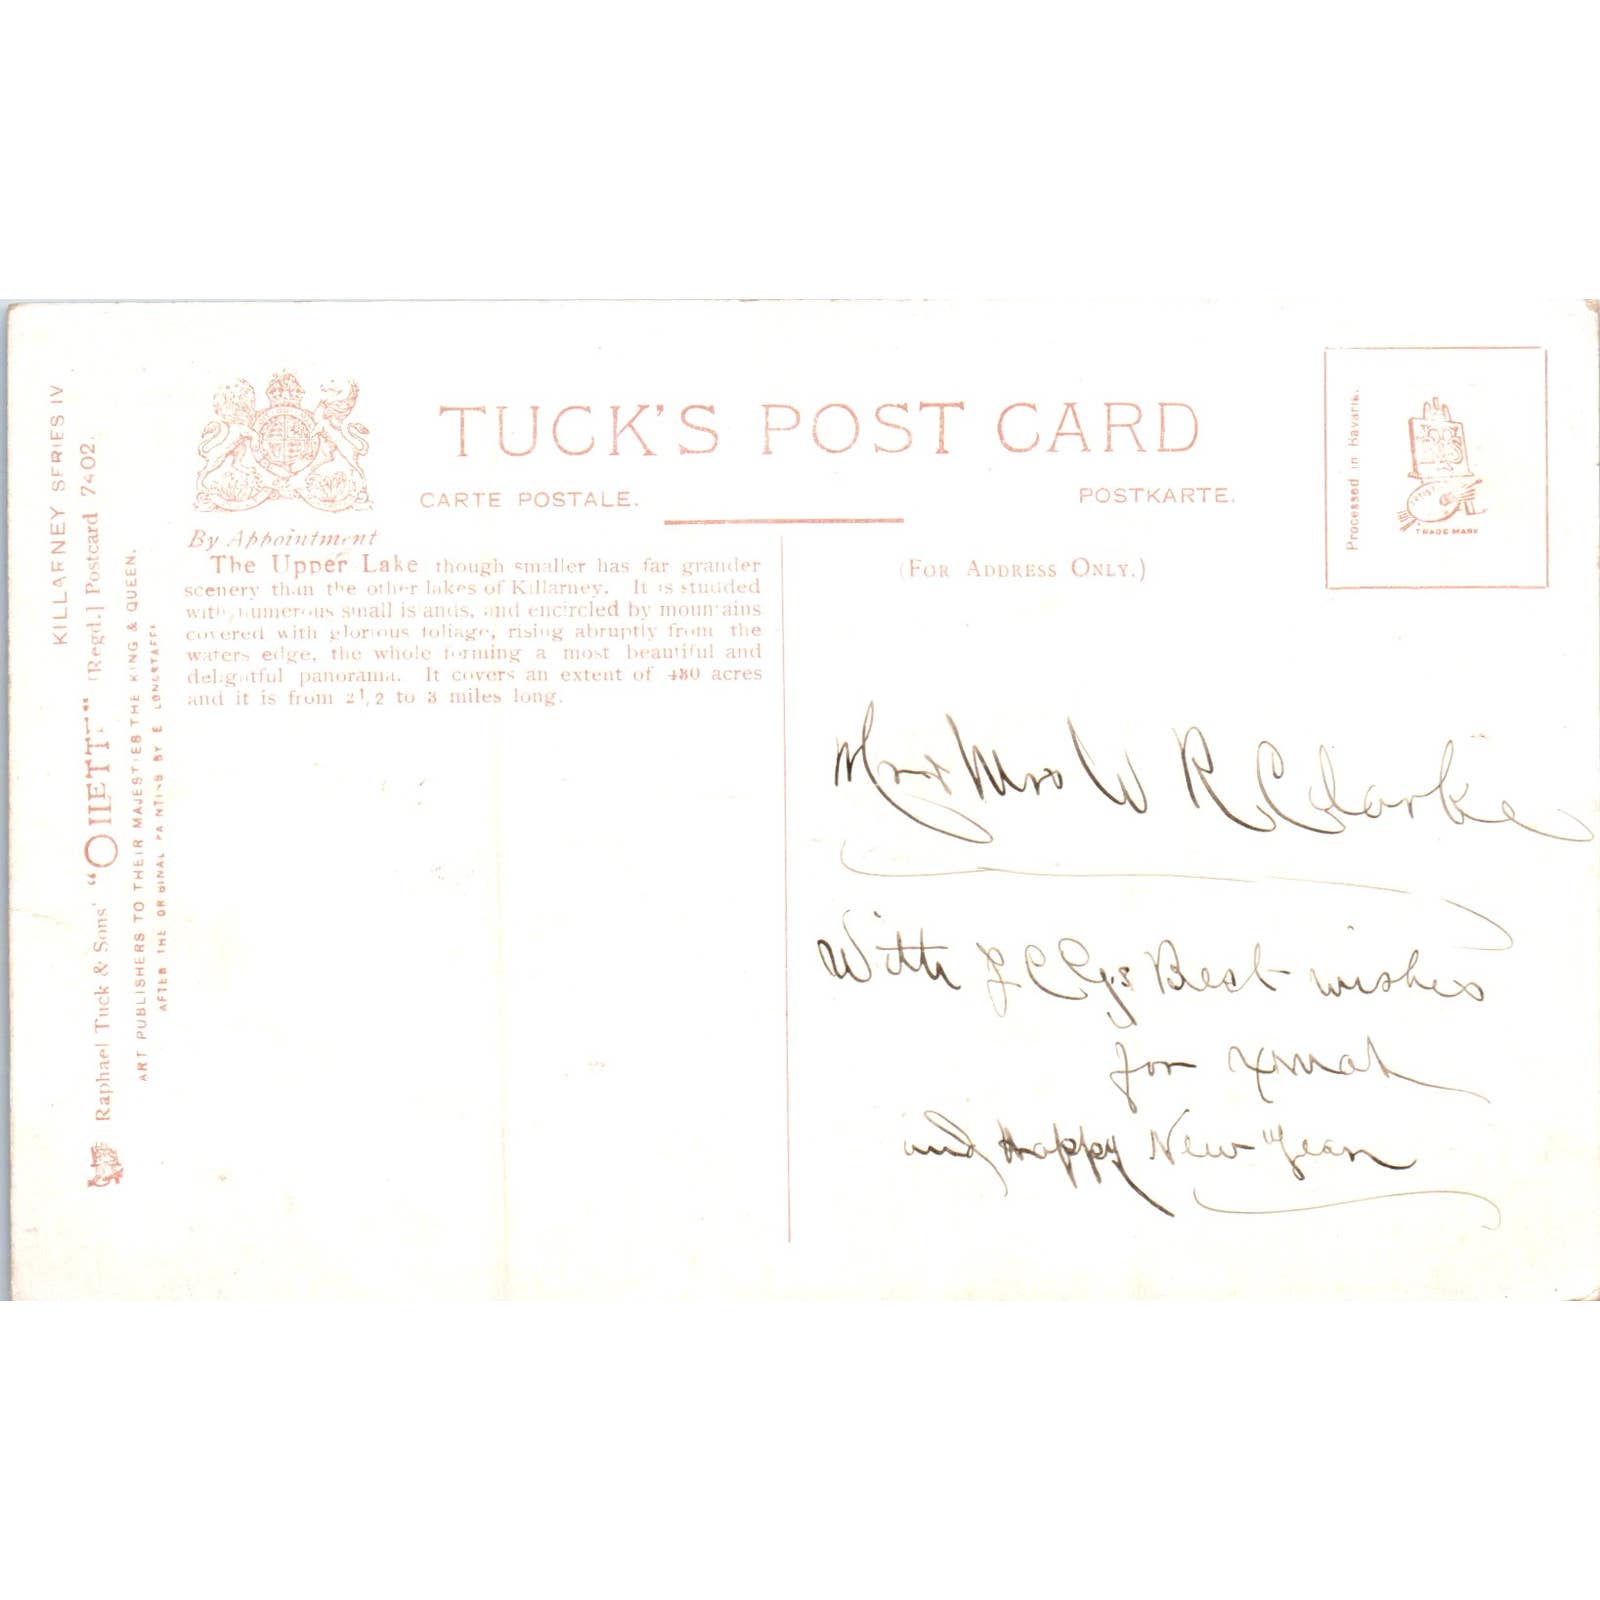 KILLARNEY SERIES IV
Raphael Tuck & Sons' "OILETTE" [Regd.] Postcard 7402.
ART PUBLISHERS TO THEIR MAJESTIES THE KING & QUEEN.
AFTER THE ORIGINAL PAINTING BY E LONGSTAFFE
By Appointment
TUCK'S POST CARD
CARTE POSTALE.
POSTKARTE.
Processed in Bavaria.
TRADE MARK
The Upper Lake though smaller has far grander
scenery than the other lakes of Killarney. It is studded
with numerous small islands, and encircled by mountains
covered with glorious foliage, rising abruptly from the
waters edge, the whole forming a most beautiful and
delightful panorama. It covers an extent of 430 acres
and it is from 2½ to 3 miles long.
(FOR ADDRESS ONLY.)
Mr & Mrs W R Clarke
With Best wishes
for Xmas
and Happy New Year